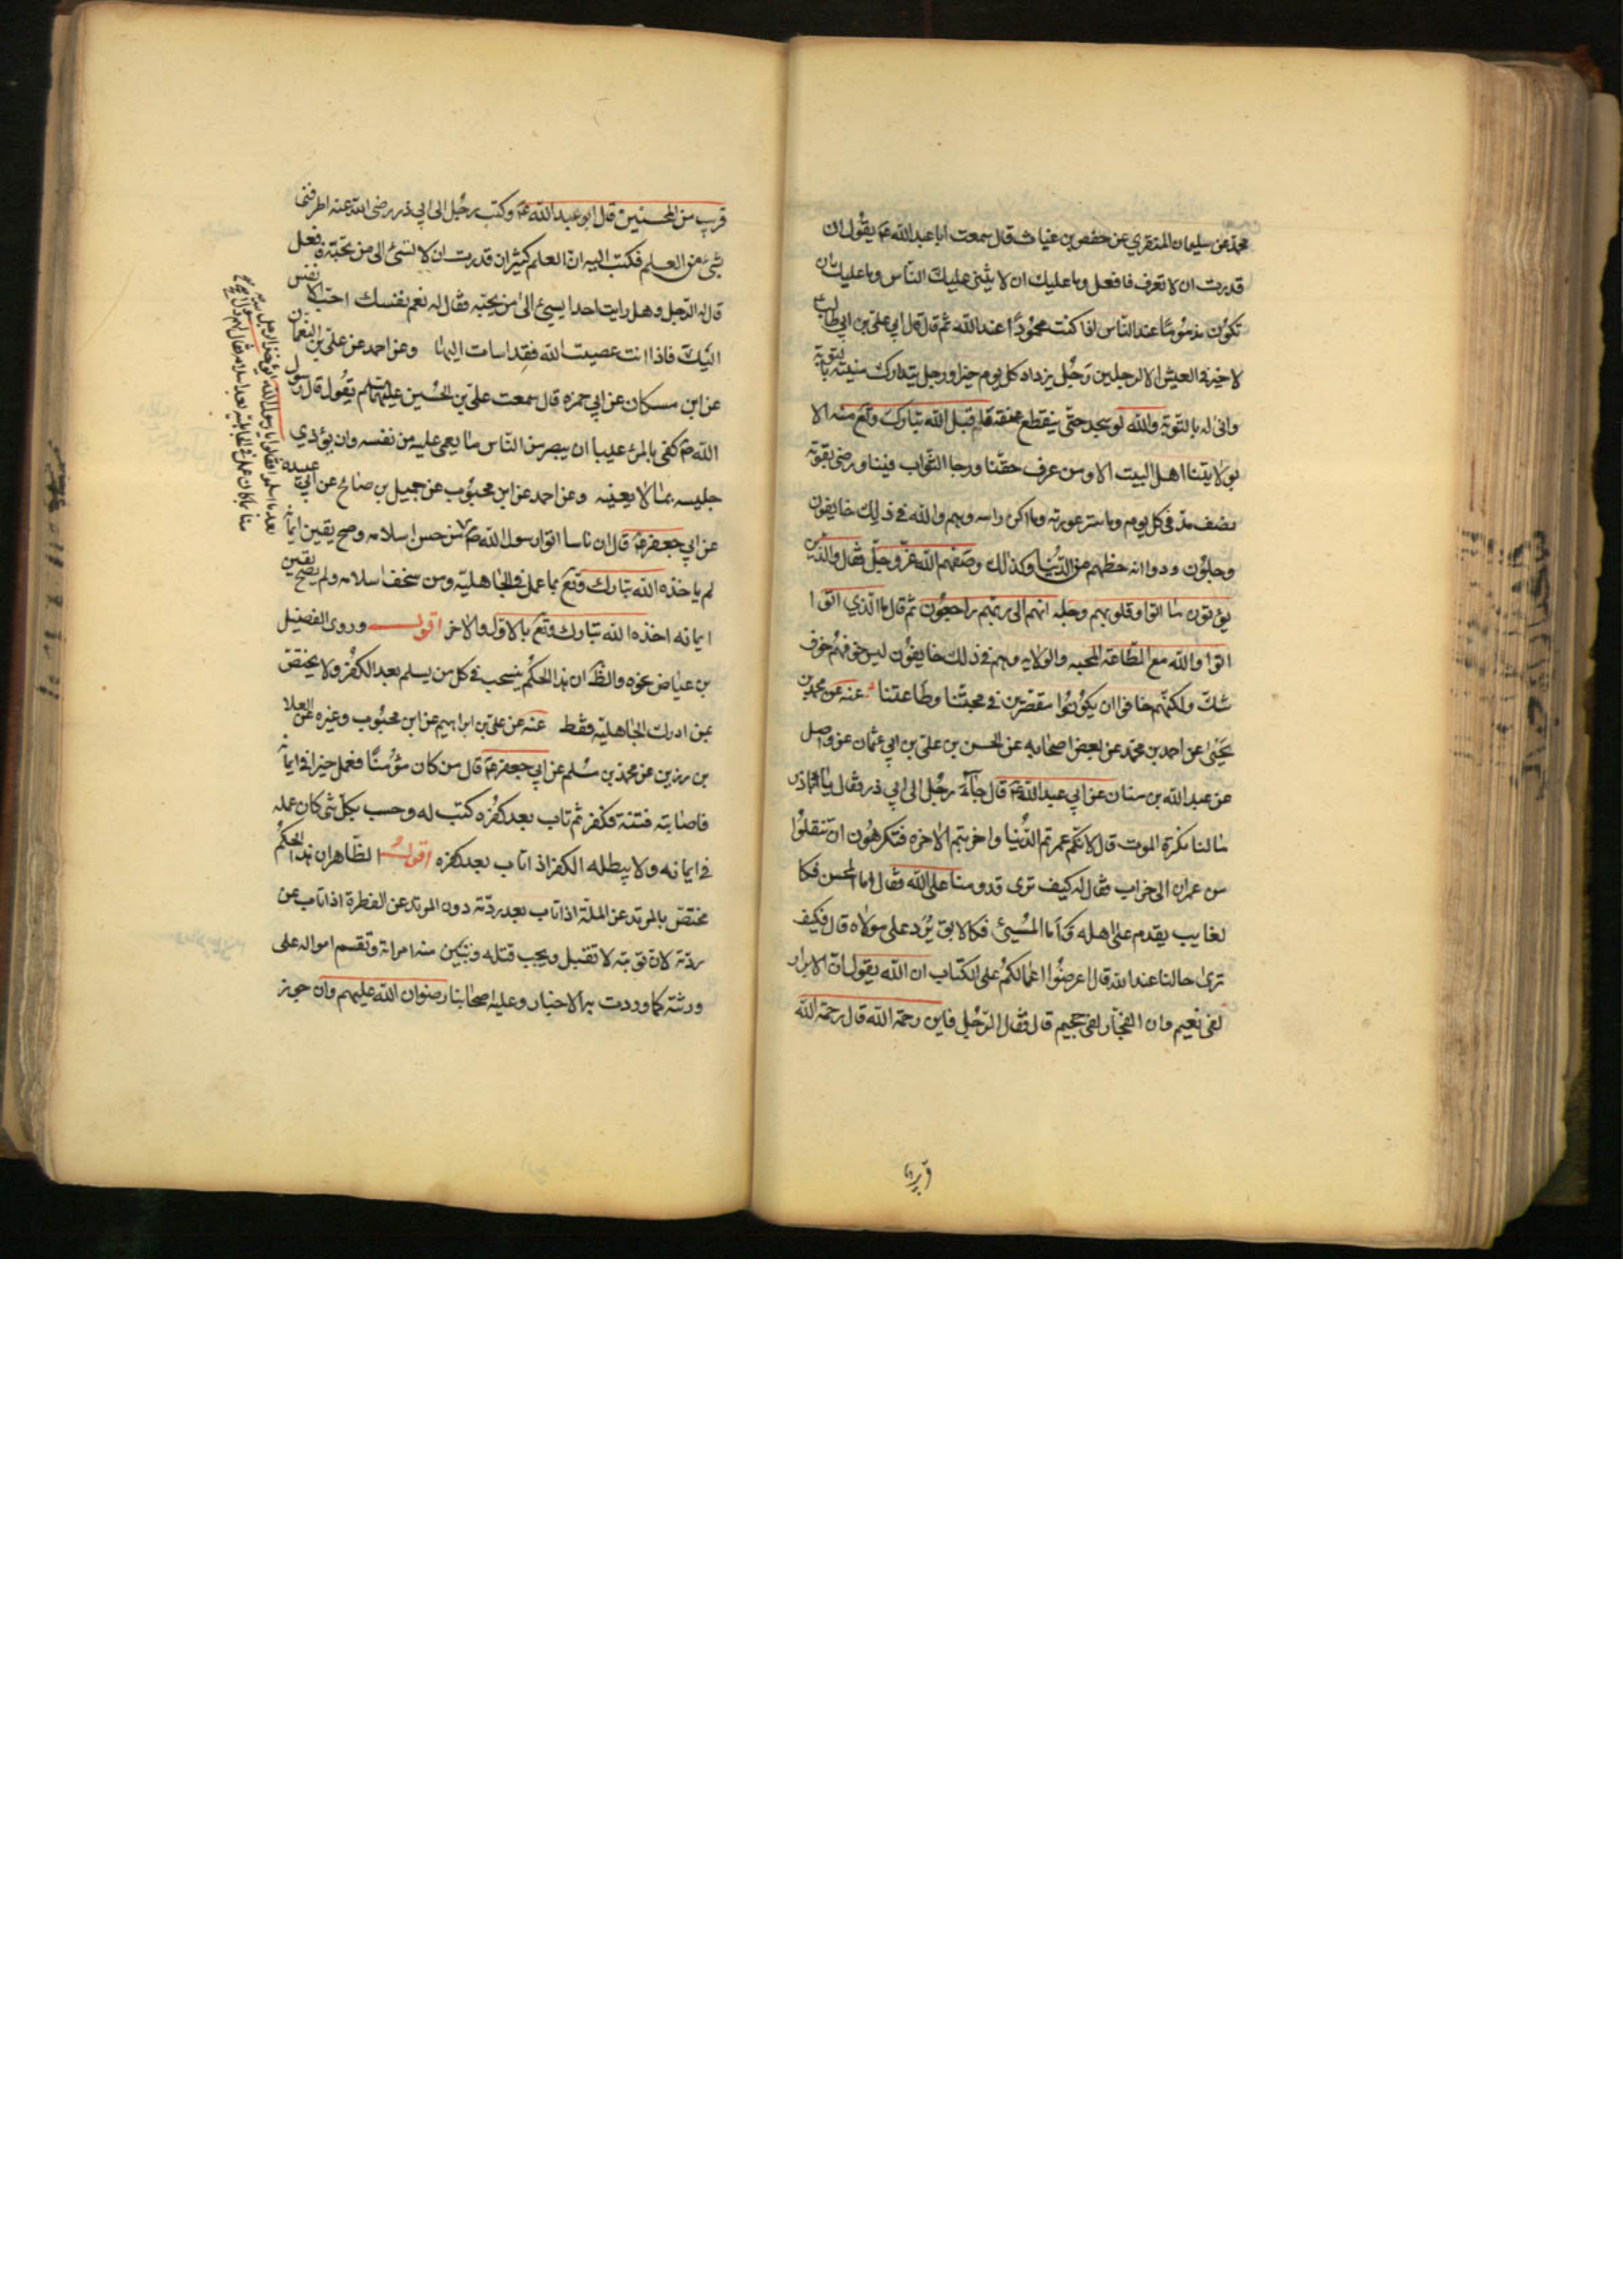 محمد عن سليمان المنقري عن حفص بن غياث قال سمعت ابا عبدالله ع يقول ان
قدرت ان لا تعرف فافعل وما عليك ان لا يثنى عليك الناس وما عليك ان
تكون مذموما عند الناس اذا كنت محمودا عند الله ثم قال قال ابي علي بن ابي طالب
لا خير في العيش الا لرجلين رجل يزداد كل يوم خيرا ورجل يتدارك منيته بالتوبة
وانى له بالتوبة والله لو سجد حتى ينقطع عنقه ما قبل الله تبارك وتع منه الا
بولايتنا اهل البيت الا ومن عرف حقنا ورجا الثواب فينا ورضي بقوته
نصف مد في كل يوم وما ستر عورته وما اكن راسه وهم والله في ذلك خايفون
وجلون ودوا انه حظهم من الدنيا وكذلك وصفهم الله عز وجل فقال والذين
يؤتون ما اتوا وقلوبهم وجلة انهم الى ربهم راجعون ثم قال ما الذي اتوا
اتوا والله مع الطاعة المحبه والولايه وهم في ذلك خايفون ليس خوفهم خوف
شك ولكنهم خافوا ان يكونوا مقصرين في محبتنا وطاعتنا عنه عن محمد بن
يحيى عن احمد بن محمد عن بعض اصحابه عن الحسن بن علي بن ابي عثمان عن واصل
عن عبدالله بن سنان عن ابي عبدالله ع قال جآء رجل الى ابي ذر فقال يا اباذر
ما لنا نكره الموت قال لانكم عمرتم الدنيا واخربتم الاخره فتكرهون ان تنقلوا
من عمران الى خراب فقال له كيف ترى قدومنا على الله فقال اما المحسن فكا
لغايب يقدم على اهله واما المسيئ فكالابق يرد على مولاه قال فكيف
ترى حالنا عند الله قال اعرضوا اعمالكم على الكتاب ان الله يقول ان الابرار
لفي نعيم وان الفجار لفي جحيم قال فقال الرجل فاين رحمة الله قال رحمة الله
قريب
قريب من المحسنين قال ابو عبدالله ع وكتب رجل الى ابي ذر رضي الله عنه اطرفني
بشئ من العلم فكتب اليه ان العلم كثير ان قدرت ان لا تسئ الى من تحبه فافعل
قال له الرجل وهل رايت احدا يسيئ الى من يحبه فقال له نعم نفسك احب الانفس
اليك فاذا انت عصيت الله فقد اسات اليها وعن احمد عن علي بن النعمان
عن ابن مسكان عن ابي حمزه قال سمعت علي بن الحسين عليهما السلم يقول قال رسول
الله ص كفى بالمرء عيبا ان يبصر من الناس ما يعمى عليه من نفسه وان يؤذي
جليسه بما لا يعنيه وعن احمد عن ابن محبوب عن جميل بن صالح عن ابي عبيدة
عن ابي جعفر ع قال ان ناسا اتوا رسول الله ص من حسن اسلامه وصح يقين ايمانه
لم ياخذه الله تبارك وتع بما عمل في الجاهلية ومن سخف اسلامه ولم يصح يقين
ايمانه اخذه الله تبارك وتع بالاول والاخر اقول وروى الفضيل
بن عياض نحوه والظ ان هذا الحكم ينسحب في كل من يسلم بعد الكفر ولا يختص
بمن ادرك الجاهلية فقط عنه عن علي بن ابراهيم عن ابن محبوب وغيره عن العلا
بن رزين عن محمد بن مسلم عن ابي جعفر ع قال من كان مؤمنا فعمل خيرا في ايمانه
فاصابته فتنة فكفر ثم تاب بعد كفره كتب له وحسب بكل شئ كان عمله
في ايمانه ولا يبطله الكفر اذا تاب بعد كفره اقول الظاهر ان هذا الحكم
مختص بالمرتد عن الملة اذا تاب بعد ردته دون المرتد عن الفطرة اذا تاب عن
ردته لان توبته لا تقبل ويجب قتله وتبين منه امراته وتقسم امواله على
ورثته كما وردت به الاخبار وعليه اصحابنا رضوان الله عليهم وان جوز
بعد ما اسلموا فقالوا يا رسول الله ايؤخذ الرجل
منا بما كان عمل في الجاهلية بعد اسلامه فقال لهم